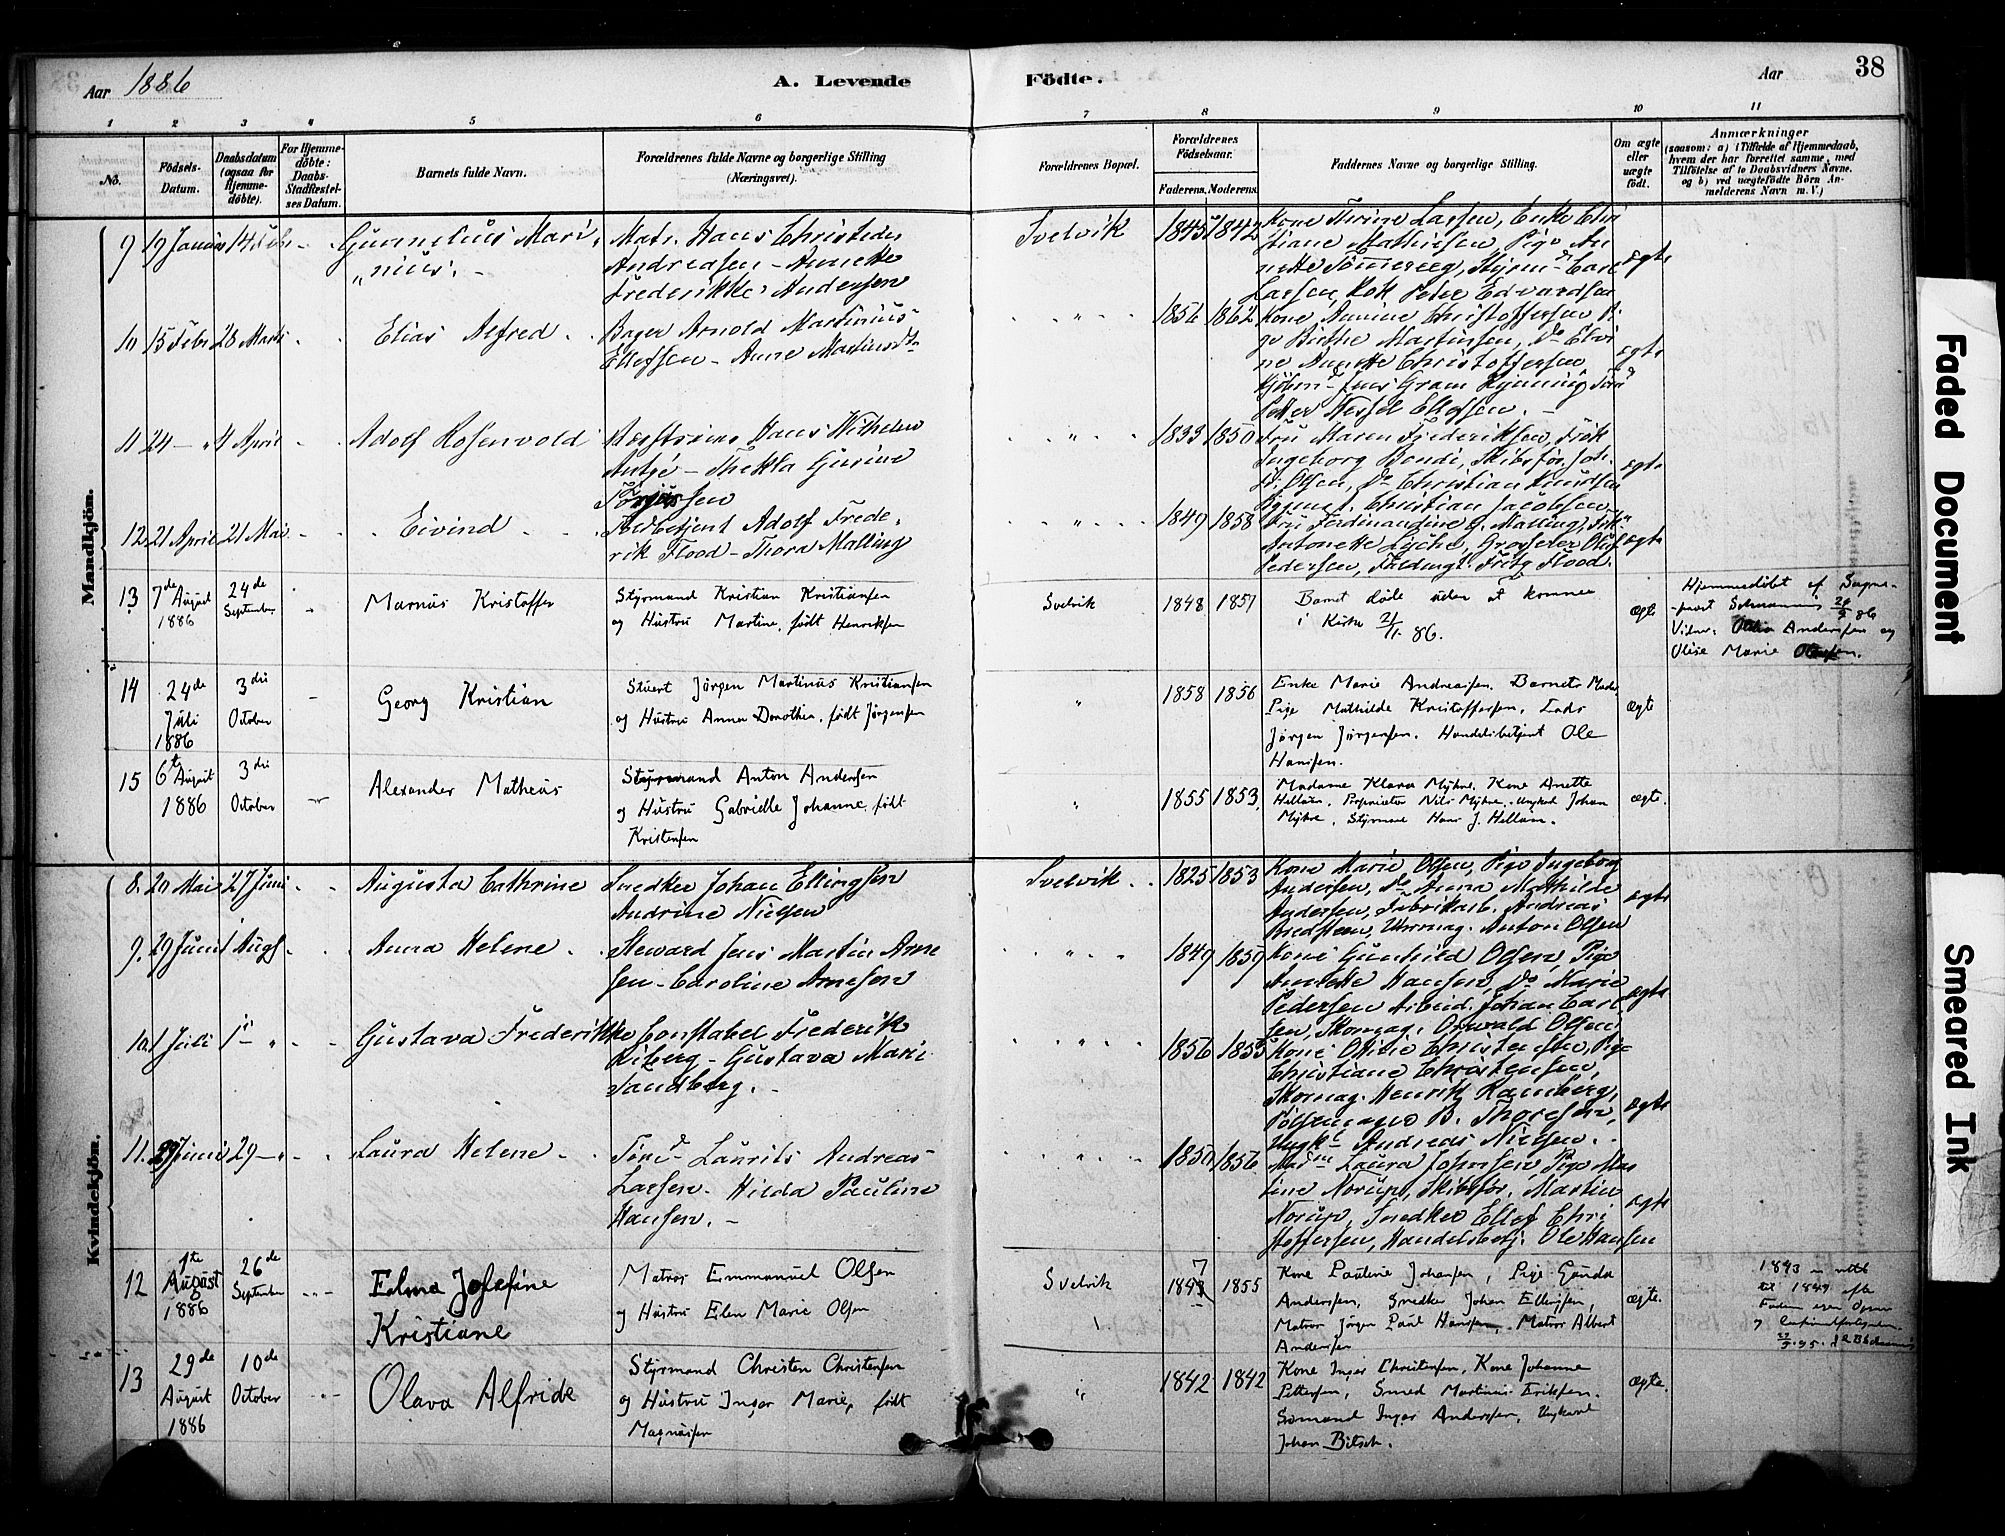 Aar 1886
A. Levende Födte.
Aar
38
1 2 3 4 5 6 7 8 9 10 11
No.
Födsels-Datum.
Daabsdatum (ogsaa for Hjemme-döbte).
For Hjemme-döbte: Daabs-Stadfæstel-ses Datum.
Barnets fulde Navn.
Forældrenes fulde Navne og borgerlige Stilling (Næringsvei).
Forældrenes Bopæl.
Forældrenes Födselsaar.
Faderens. Moderens.
Faddernes Navne og borgerlige Stilling.
Om ægte eller uægte födt.
Anmærkninger
(saasom: a) i Tilfælde af Hjemmedaab,
hvem der har forrettet samme, med
Tilföielse af to Daabsvidners Navne,
og b) ved uægtefödte Börn An-
melderens Navn m. V.)
Mandkjön.
9 19 Januar 14 Febr Gunnelius Mari-
"nius.
Matr. Hans Christeder
Andreasen - Annette
Frederikke Andersen
Svelvik 1845 1842
Kone Thrine Larsen, Enke Chri
stiane Mathiesen, Pige An
nette Tömmereeg, Styrm. Carl
Larsen, Kok Peter Edvardsen
ægte
10 15 Febr 28 Marts Elias Alfred
Bager Arnold Martinius
Ellefsen - Anne Martinsdtr
" 1856 1862
Kone Annine Christoffersen Pi-
ge Birthe Martinsen, Do Elvi
ne Annette Christoffersen
Kjöbm. Jens Gram Hjenning
Petter Nessel Ellefsen.
ægte
11 24 - " 4 April Adolf Rosenvold
Hans Wilhelm
- Thekla Gurine
Torjussen
" 1833 1850
Fru Maren Frederiksen, Frök
Ingeborg Bondi, Skibsför. Joh.
Fr. Olsen, Do Christian Knudsen
Christian Jacobsen
ægte
12 21 April 21 Mai Eivind
Toldbetjent Adolf Frede-
rik Flood - Thora Malling
" 1849 1858
Fru Ferdinandine G. Malling, Frk
Antonette Lyche, Grosserer Oluf
Pedersen, Fuldmægt. Fritz Flood.
ægte
13 7de August 1886 24de September Marnus Kristoffer
Styrmand Kristian Kristiansen
og Hustru Martine, født Henriksen
Svelvik 1848 1857
Barnet døde uden at komme
i Kirke 21/11 86.
ægte
Hjemmedøbt af Sogne-
-prest Schrammis 24/9 86
Vidner: Andersen og
Olise Marie Olsen.
14 24de Juli 1886 3die October Georg Kristian
Stuert Jörgen Martinus Kristiansen
og Hustru Anna Dorothea, født Jörgensen
" 1858 1856
Enke Marie Andreasen. Barnets Moder
Pige Mathilde Kristoffersen, Lods
Jörgen Jörgensen. Handelsbetjent Ole
Hansen.
ægte
15 6te August 1886 3die October Alexander Matheus
Styrmand Anton Andersen
og Hustru Gabrielle Johanne, født
Kristensen
" 1855 1853
Madame Klara Myhre, Kone Anette
Hellum, Proprietær Nils Myhre, Ungkarl Johan
Myhre, Styrmand Hans J. Hellum.
ægte.
Kvindekjön.
8. 20 Mai 27 Juni Augusta Cathrine
Snedker Johan Ellingsen
Andrine Nielsen
Svelvik 1825 1853
Kone Marie Olsen, Pige Ingeborg
Andersen, Do Anna Mathilde
Andersen, Fabrikarb. Andreas
Bredsteen, Uhrmag. Anton Olsen
ægte
9. 29 Juni 1 Augs Anna Helene
Steward Jens Martin Arne
sen - Caroline Arnesen
" 1849 1859
Kone Gunhild Olsen, Pige
Annette Hansen, Do Marie
Pedersen Arbeid. Johan Carl
sen, Skomag. Oswald Olsen
ægte
10 1 Juli 1 - " Gustava Frederikke
Constabel Frederik
Riberg - Gustava Marie
Sandberg.
" 1856 1855
Kone Othilie Christensen, Pige
Christiane Christensen,
Skomag. Henrik Ramberg,
Pölsemager B. Thoresen,
Ungk. Andreas Nielsen.
ægte
11. 29 Juni 29 - " Laura Helene
Tömd Laurits Andreas
Larsen. Hilda Pauline
Hansen.
" 1850 1856
Madm Laura Johnsen, Pige Mar
tine Norup, Skibsför. Martin
Norup, Snedker Ellef Chri
stoffersen, Handelsbetj. Ole Hansen
ægte
12 1te August 1886 26de September Elma Josefine
Kristiane
Matros Emmanuel Olsen
og Hustru Elen Marie Olsen
Svelvik 1843 7 1855
Kone Pauline Johansen, Pige Gunda
Anderssen, Snedker Johan Ellingsen,
Matros Jörgen Paul Hansen, Matros Albert
Andersen
ægte.
1843 er rettet
til 1847 efter
Faderen egen Opgave
og
27/5 95.
13 29de August 1886 10de October Olava Alfride
Styrmand Christen Christensen
og Hustru Inger Marie, født
Magnusen
" 1842 1842
Kone Inger Christensen, Kone Johanne
Pettersen, Smed Martinus Eriksen.
Sömand Inger Anderssen, Ungkarl
Johan Bilsch.
ægte.
Faded Document
Smeared Ink